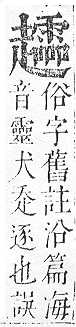 俗字舊註沿篇海
音靈犬赱逐也誤